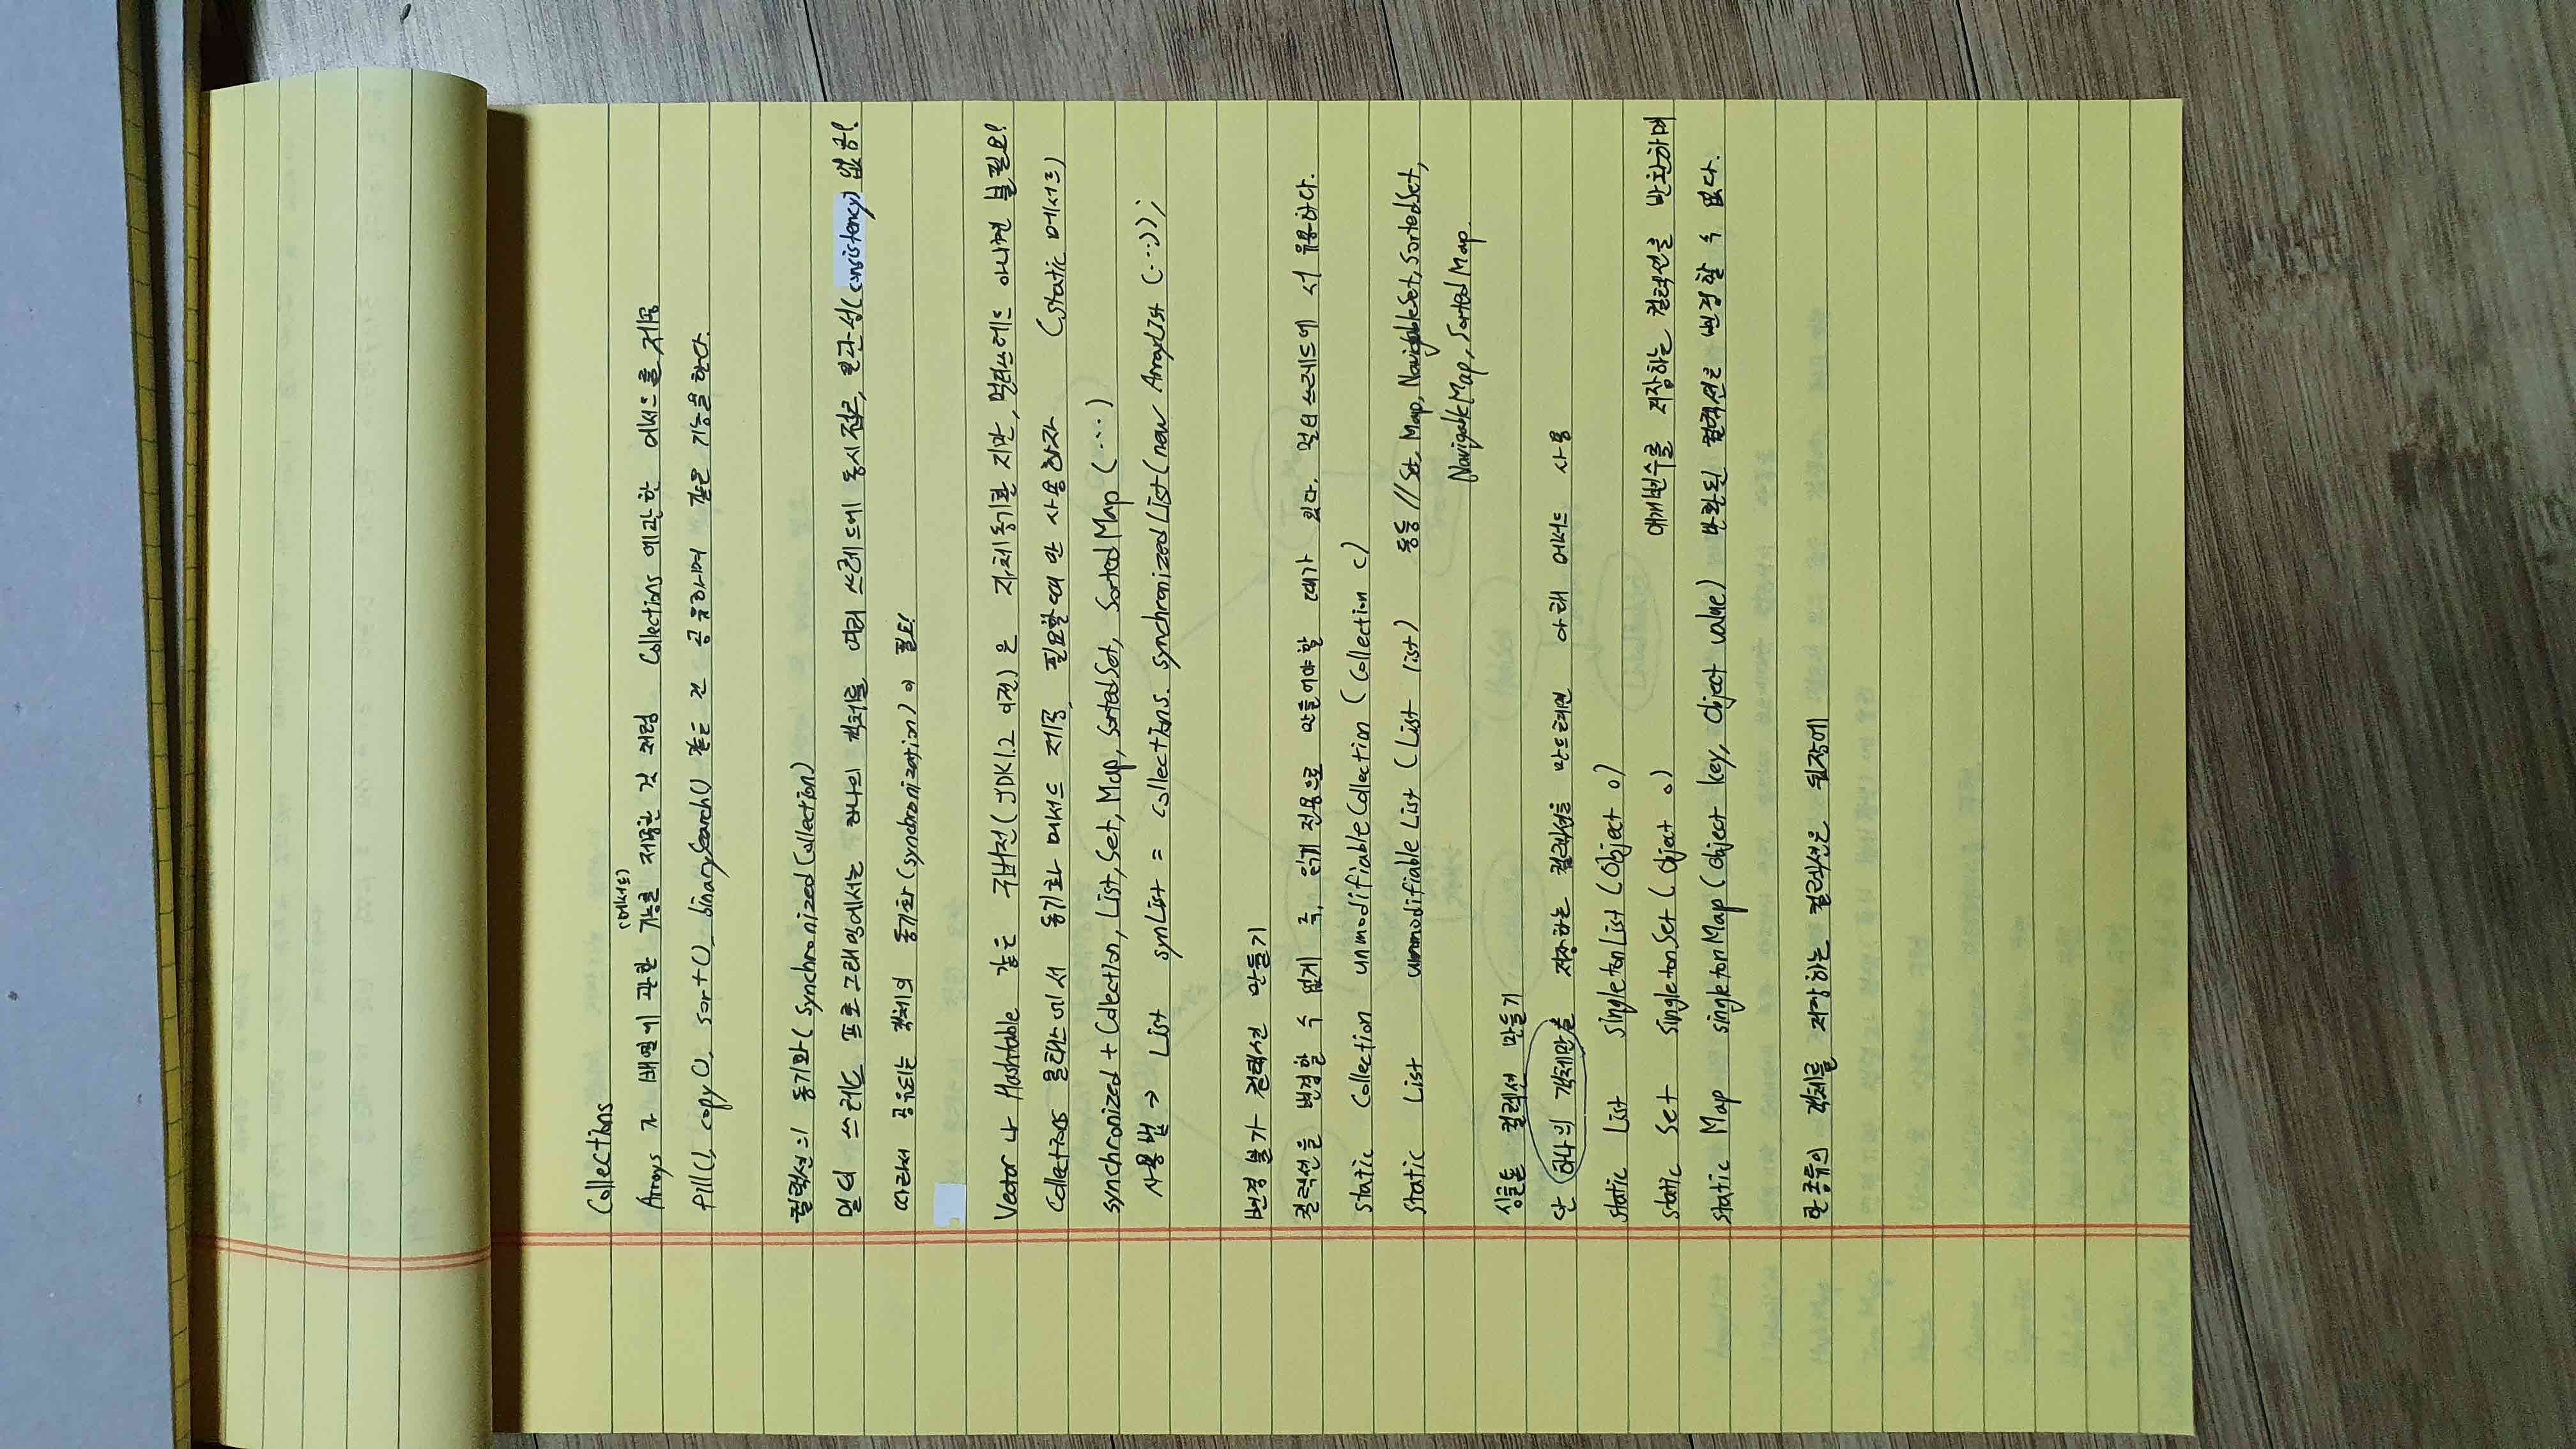 Collections
(메서드)
Arrays 가 배열에 관한 기능을 제공한 것 처럼 Collections 에 관한 메서드를 제공
fill(), copy(), sort(), binarySearch() 같은 건 공유하며 같은 기능을 한다.
컬렉션의 동기화(synchronized Collection)
멀티 쓰레드 프로그래밍에서는 하나의 객체를 여러 쓰레드에 동시 접근, 일관성(consistency) 없음!
따라서 공유되는 객체의 동기화(synchronization)이 필요!
Vector 나 Hashtable 같은 구버전(JDK1.2 이전)은 자체동기화 지만, 멀티쓰레드 아니면 불필요!
Collections 클래스에서 동기화 메서드 제공, 필요할때만 사용하자 (static 메서드)
synchronized + Collection, List, Set, Map, SortedSet, SortedMap (...)
사용법 → List synList = Collections.synchronizedList(new ArrayList (...));
변경 불가 컬렉션 만들기
컬렉션을 변경할 수 없게 즉, 읽기 전용으로 만들어야할 때가 있다. 멀티 쓰레드에서 유용하다.
static Collection unmodifiableCollection (Collection c)
static List unmodifiable List (List list) 등등 // Set, Map, NavigableSet, SortedSet,
NavigableMap, Sorted Map.
싱글톤 컬렉션 만들기
단 하나의 객체만을 저장하는 컬렉션을 만드려면 아래 메서드 사용
static List singletonList (Object o)
static Set singletonSet ( Object o) 매개변수를 저장하는 컬렉션을 반환하며
static Map singletonMap (Object key, Object value) 반환된 컬렉션은 변경할 수 없다.
한 종류의 객체를 저장하는 컬렉션은 뒷장에